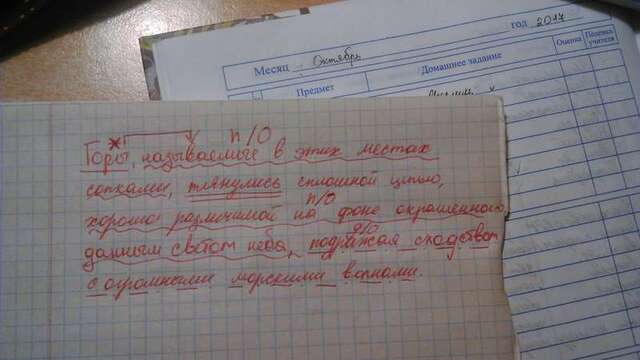 год 2017
Месяц Октябрь
Предмет
Домашнее задание
Оценка
Подпись учителя
п/о
Горы, называемые в этих местах
сопками, тянулись сплошной цепью,
п/о
хорошо различимой на фоне окрашенного
д/о
данным светом неба, подражая сходством
с огромными морскими волнами.